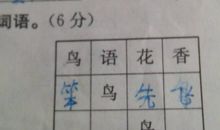 词语。(6分)
鸟 语 花 香
笨 鸟 先 飞
鸟